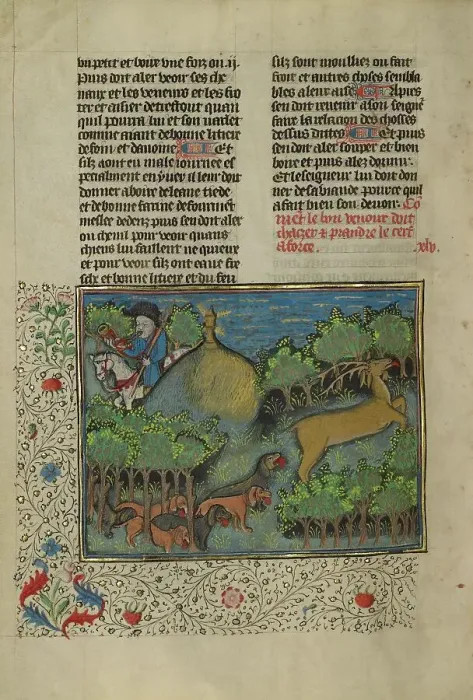 un petit et boire vne foiz ou .ij.
Puis doit aler veoir ses che
uaux et les veneurs et les fio
ter et aisier de trestout quan
quil pourra lui et son varlet
comme aiant de bonne lictiere
de foin et dauoine. Et
silz a ont eu male iournee es
pecialment en yuer il leur doit
donner a boire de leaue tiede
et de bonne farine de fourment
meslee dedenz puis sen doit aler
ou chenil pour veoir quans
chiens lui faillent ne quieux
et pour veoir silz ont eaue fre
sche et bonne litiere et du feu
silz sont moulliez ou fait
froit et autres choses sembla
bles a leur aise Apres
sen doit reuenir a son seigneur
faire la relacion des choses
dessus dittes Et puis
sen doit aler souper et bien
boire et puis alez dormir.
Et le seigneur lui doit don
ner de sa viande pource quil
a fait bien son deuoir. Co
ment le bon veneur doit
chacer et prandre le cerf
a force. .xlv.